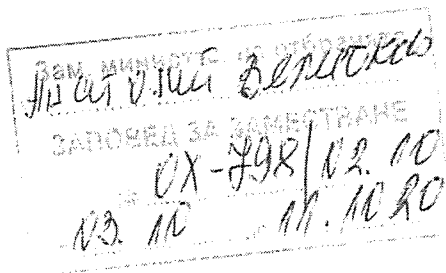 Зам. министър на отбраната
Анатолий Величков
ЗАПОВЕД ЗА ЗАМЕСТВАНЕ
ОХ-798/02.10
03.10 11.10 20